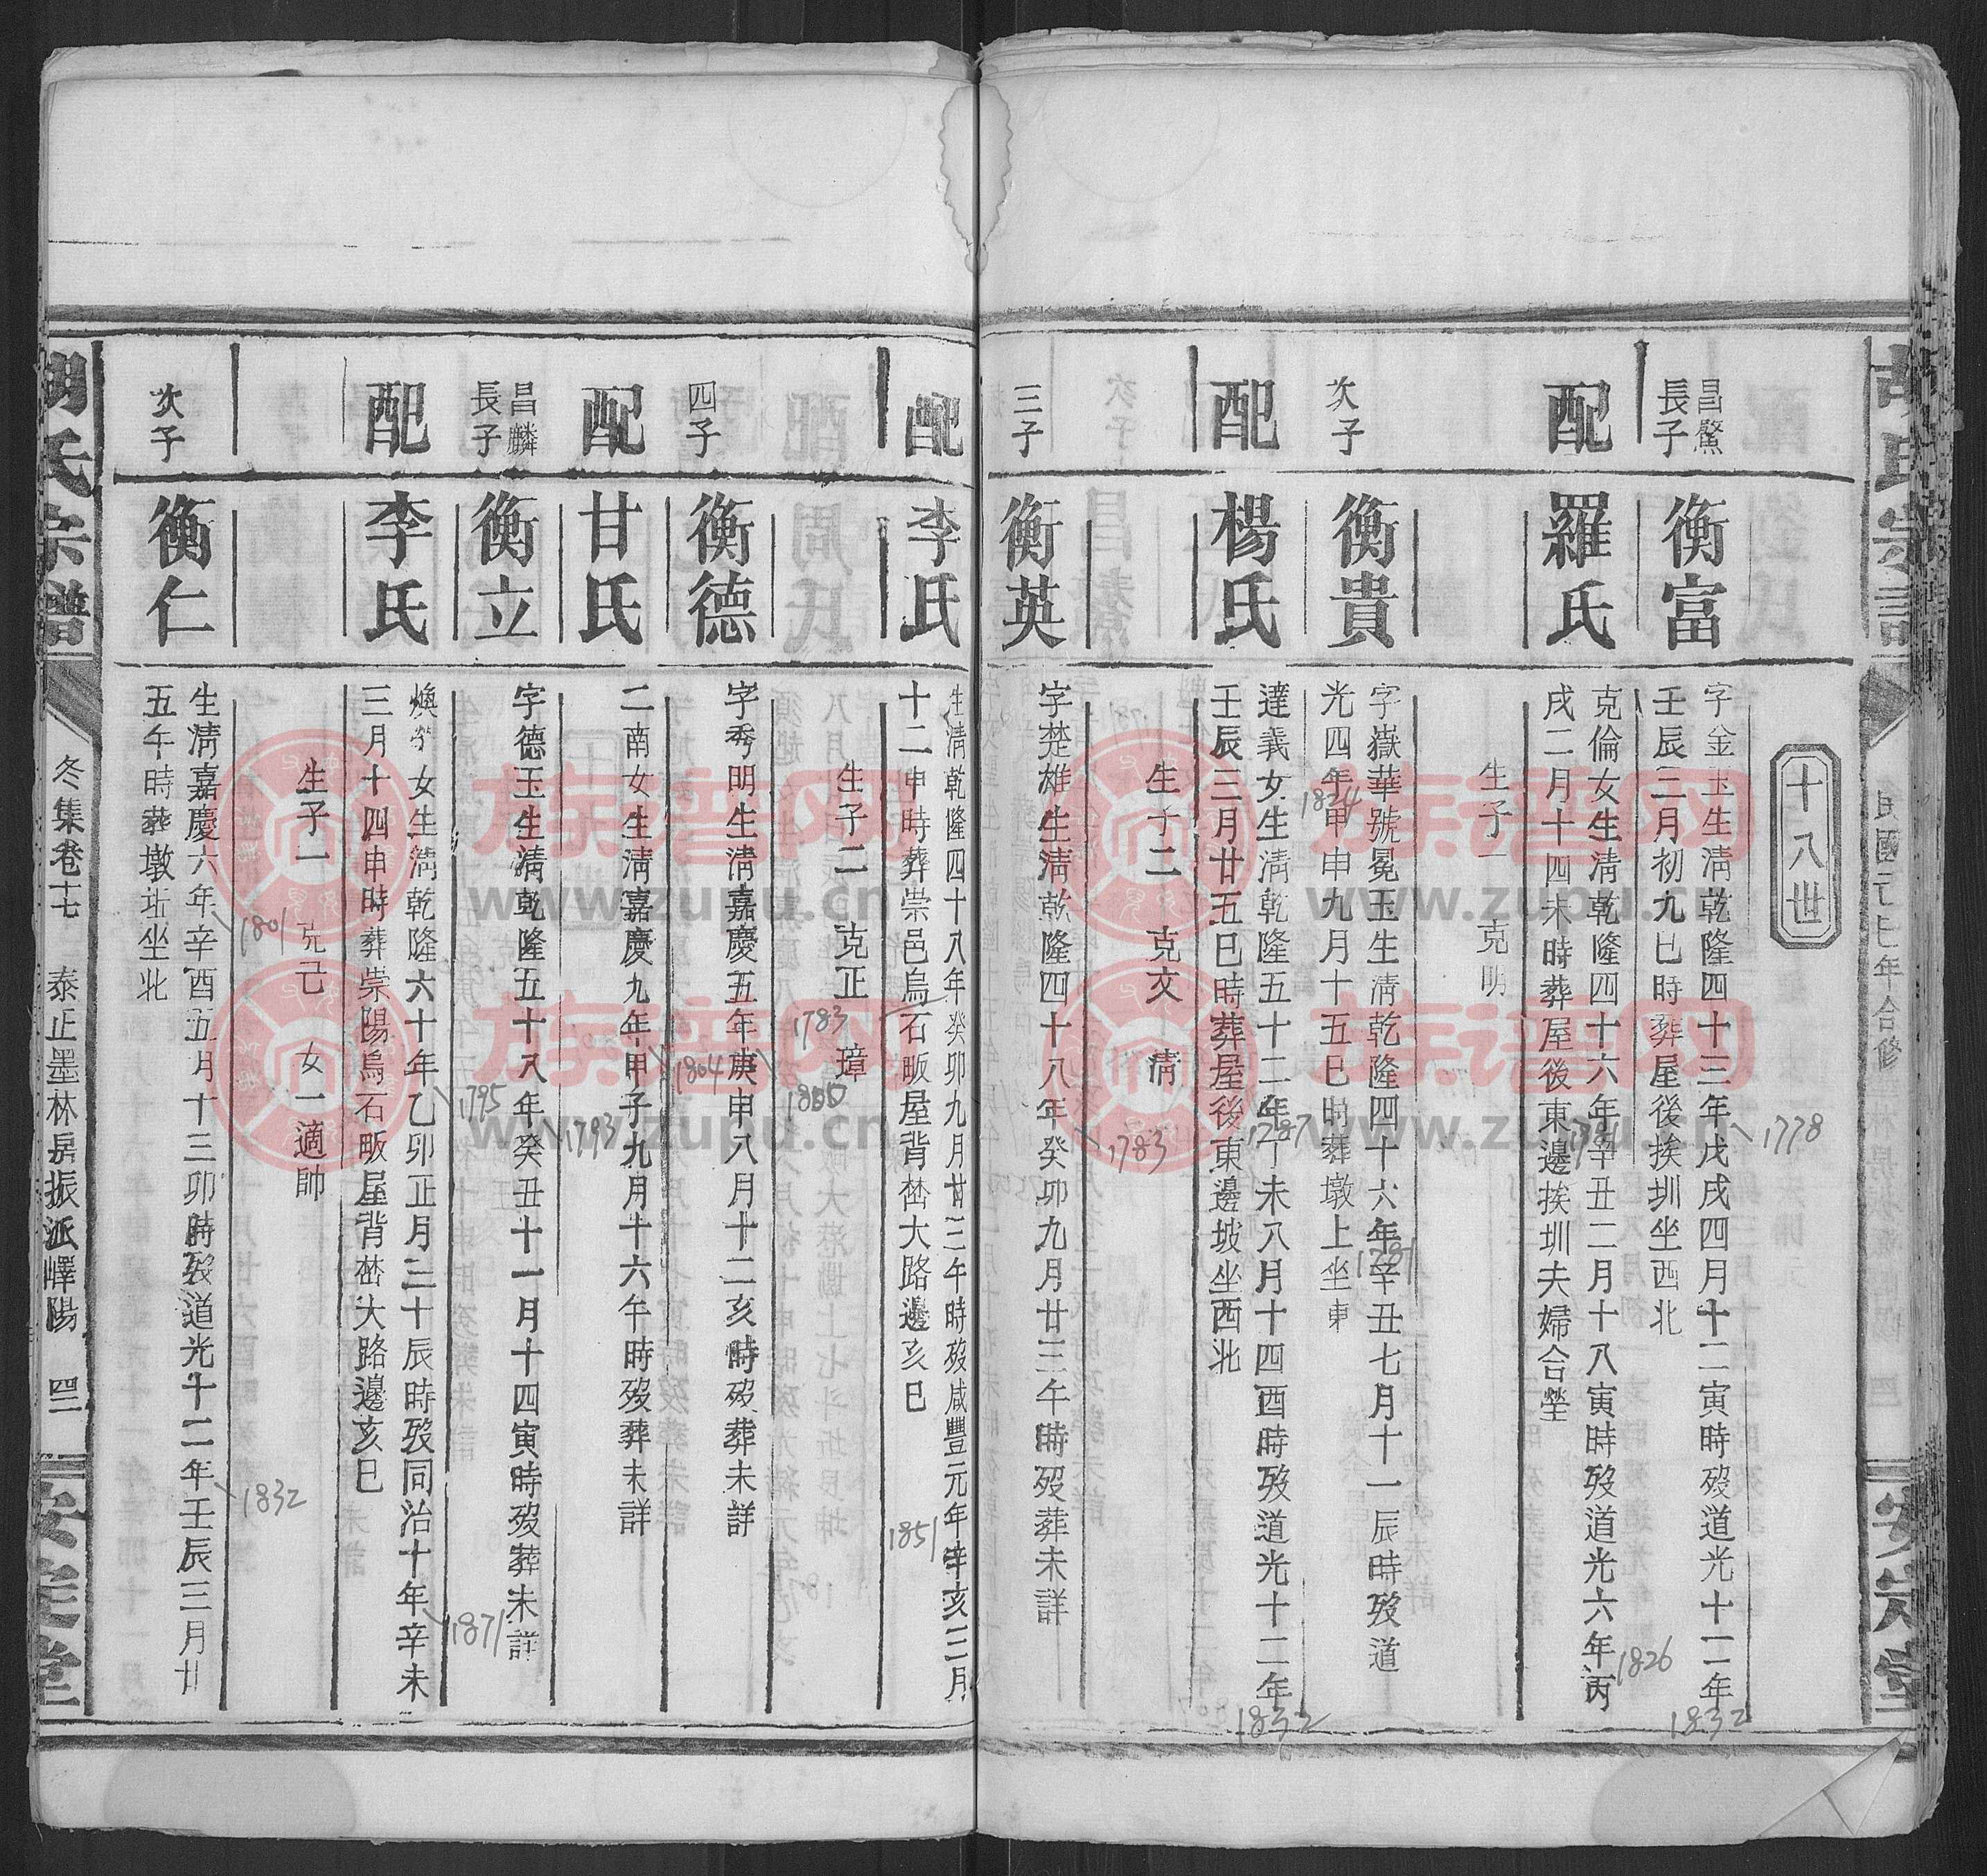 胡氏宗譜
民國元七年合修
安定堂
十八世
昌驚長子
衡富
字金玉生淸乾隆四十三年戊戌四月十二寅時歿道光十二年
壬辰三月初九巳時葬屋後挨圳坐西北
配
羅氏
克倫女生淸乾隆四十六年辛丑二月十八寅時歿道光六年丙
戌二月十四未時葬屋後東邊挨圳夫婦合塋
生子一 克明
次子
衡貴
字嶽華號冕玉生淸乾隆四十六年辛丑七月十一辰時歿道
光四年甲申九月十五巳時葬墩上坐東
配
楊氏
達義女生淸乾隆五十二年丁未八月十四酉時歿道光十二年
壬辰三月廿五巳時葬屋後東邊坡坐西北
生子二 克交 淸
三子
衡英
字楚雄生淸乾隆四十八年癸卯九月廿三午時歿葬未詳
配
李氏
生淸乾隆四十八年癸卯九月廿三午時歿咸豐元年辛亥三月
十二申時葬崇邑烏石畈屋背嵆大路邊亥巳
生子二 克正 璋
四子
衡德
字秀明生淸嘉慶五年庚申八月十二亥時歿葬未詳
配
甘氏
二南女生淸嘉慶九年甲子九月十六午時歿葬未詳
昌麟長子
衡立
字德玉生淸乾隆五十八年癸丑十一月十四寅時歿葬未詳
配
李氏
煥 女生淸乾隆六十年乙卯正月二十辰時歿同治十年辛未
三月十四申時葬崇陽烏石畈屋背嵆大路邊亥巳
生子一 克己 女一適帥
次子
衡仁
生淸嘉慶六年辛酉五月十三卯時歿道光十二年壬辰三月廿
五午時葬墩坵坐北
胡氏宗譜
冬集卷十七 泰正墨林房振派嶧陽 四二
安定堂
1778
1832
1781
1826
1781
1824
1787
1832
1783
1783
1851
1800
1804
1793
1795
1871
1801
1832
族谱网
www.zupu.cn
族谱网
www.zupu.cn
族谱网
www.zupu.cn
族谱网
www.zupu.cn